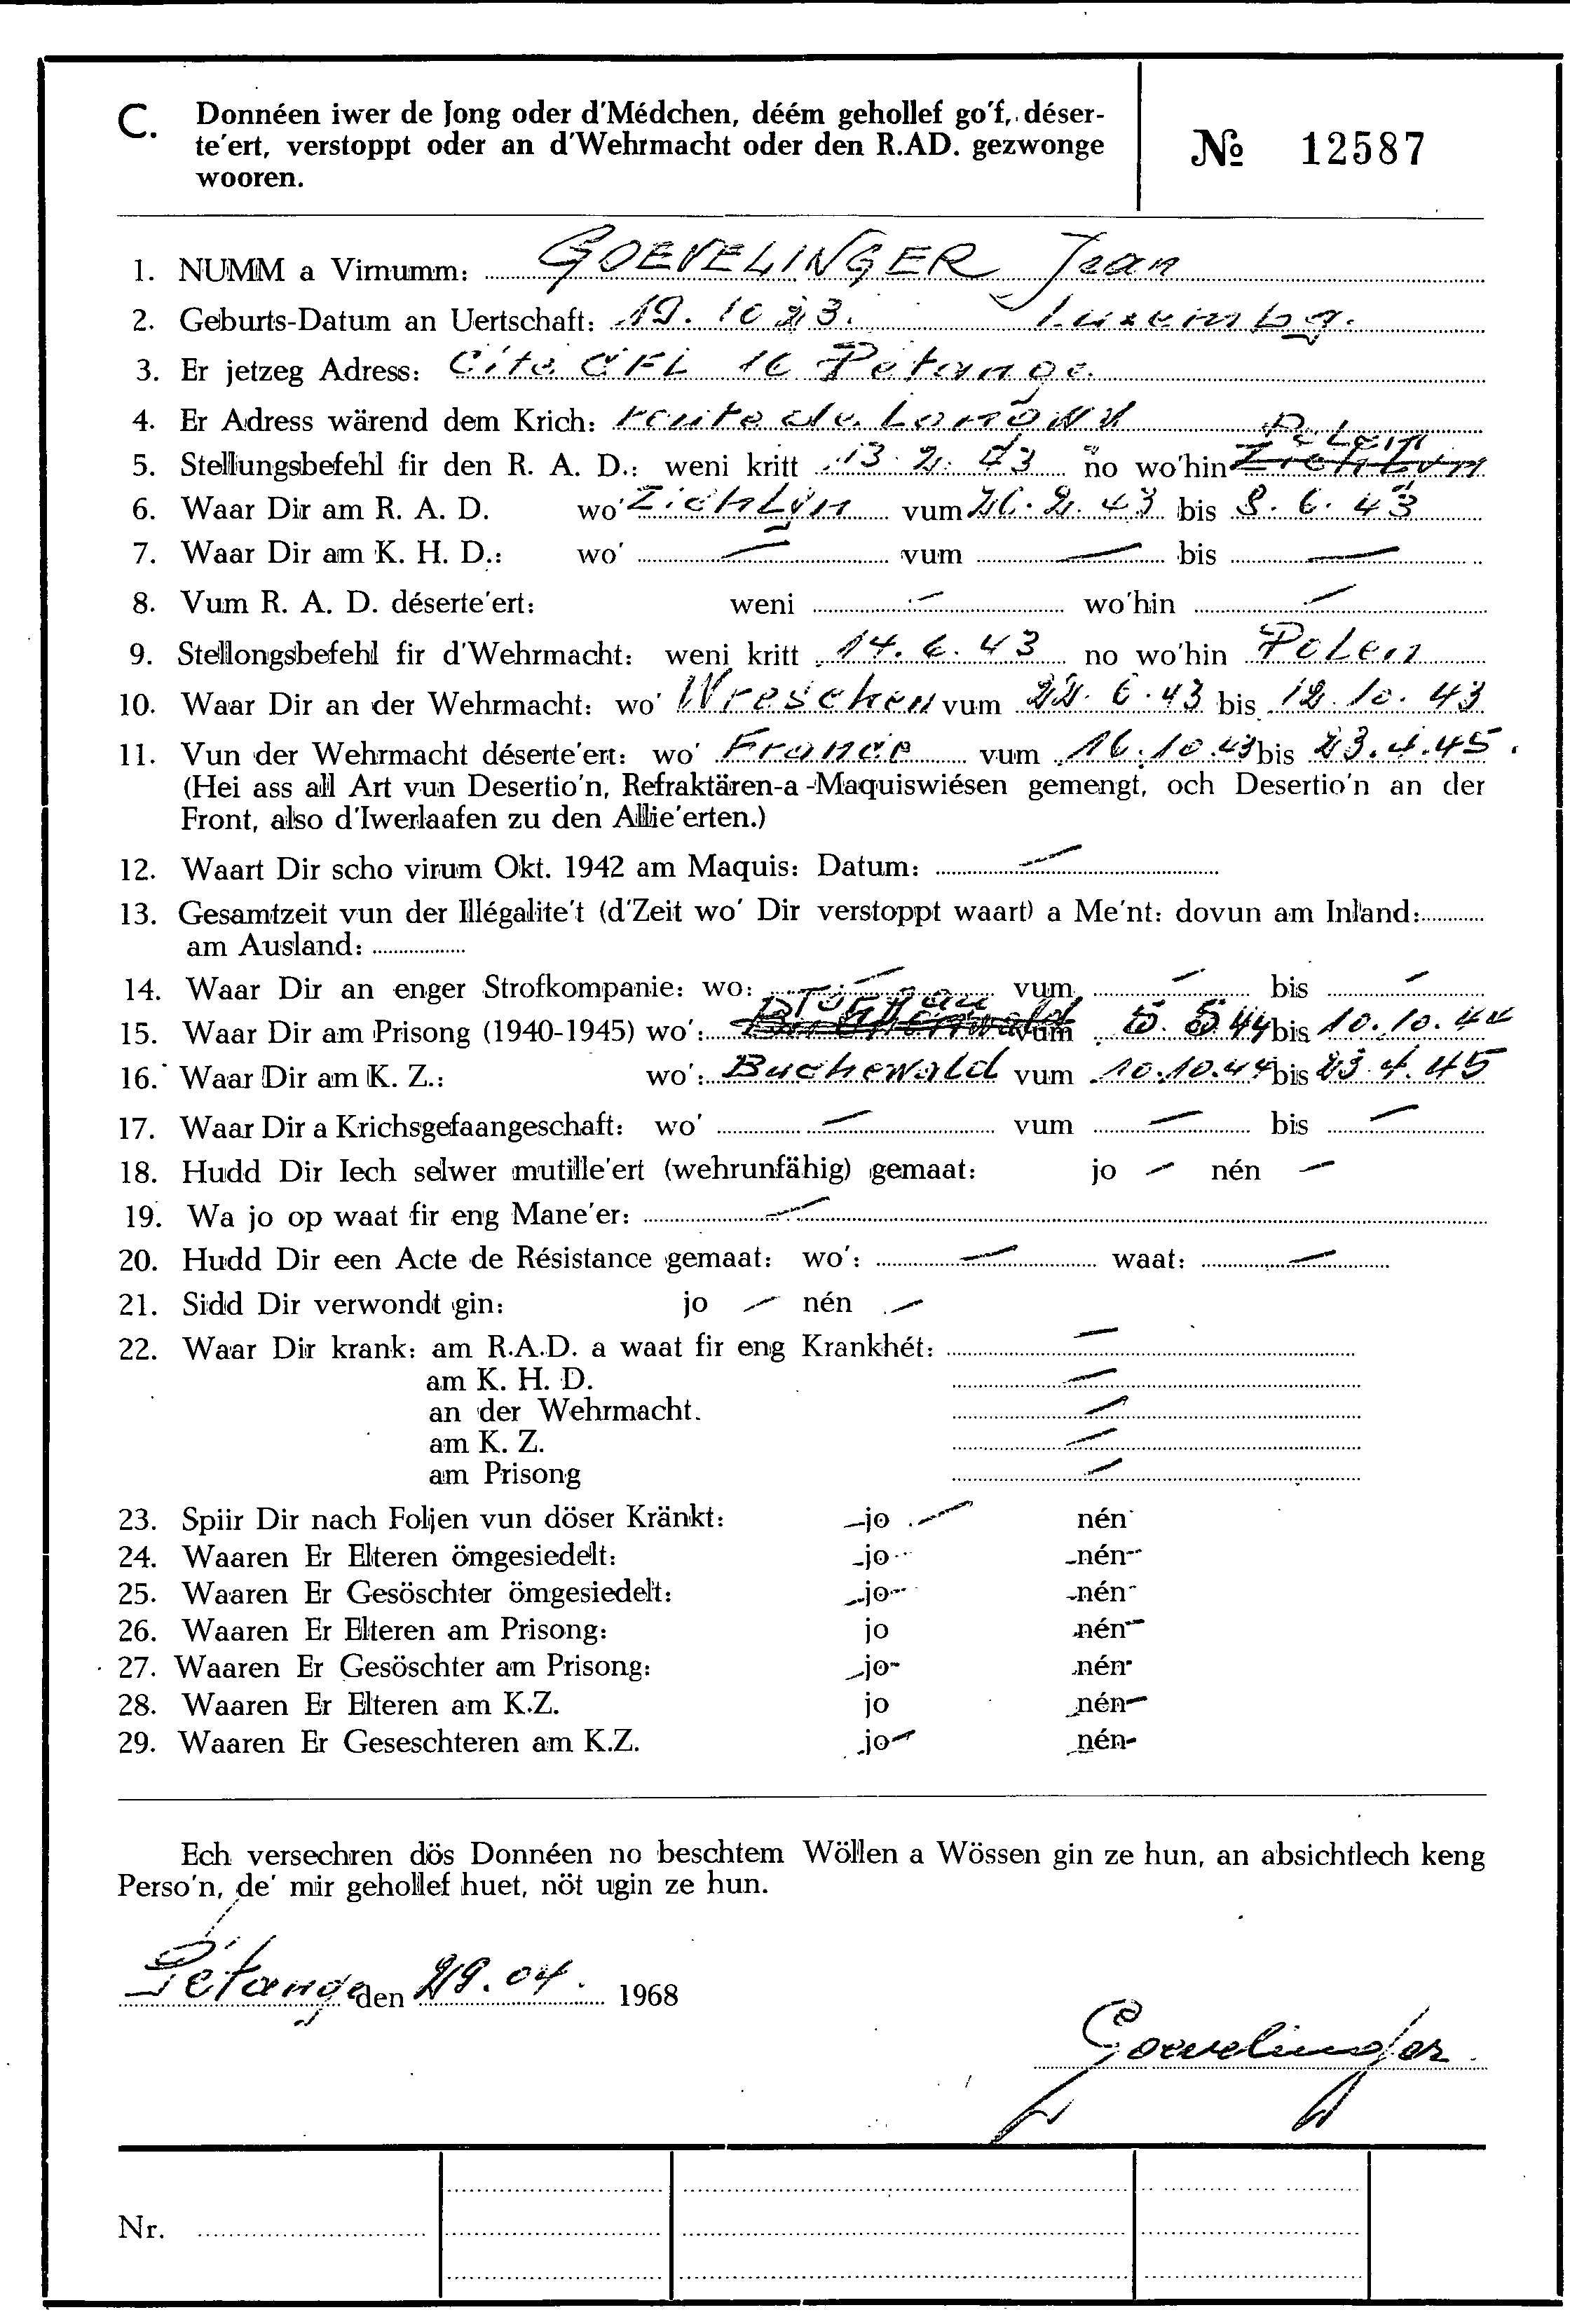 C. Donnéen iwer de Jong oder d'Médchen, déém gehollef go'f, déser-
te'ert, verstoppt oder an d'Wehrmacht oder den R.AD. gezwonge
wooren.
№ 12587
1. NUMM a Virnumm: GOEVELINGER Jean
2. Geburts-Datum an Uertschaft: 19. 10 23. Luxembg.
3. Er jetzeg Adress: Cité CFL 16 Pétange
4. Er Adress wärend dem Krich: route de Longwy
5. Stellungsbefehl fir den R. A. D.: weni kritt 13. 2. 43 no wo'hin Polen
6. Waar Dir am R. A. D. wo' Zichlyn vum 26. 2. 43 bis 8. 6. 43
7. Waar Dir am K. H. D.: wo' — vum — bis —
8. Vum R. A. D. déserte'ert: weni — wo'hin —
9. Stellongsbefehl fir d'Wehrmacht: weni kritt 14. 6. 43 no wo'hin Polen
10. Waar Dir an der Wehrmacht: wo' Wreschen vum 22. 6. 43 bis 12. 10. 43
11. Vun der Wehrmacht déserte'ert: wo' France vum 16. 10. 43 bis 23. 4. 45.
(Hei ass all Art vun Desertio'n, Refraktären-a -Maquiswiésen gemengt, och Desertio'n an der
Front, also d'Iwerlaafen zu den Allie'erten.)
12. Waart Dir scho virum Okt. 1942 am Maquis: Datum: —
13. Gesamtzeit vun der Illégalite't (d'Zeit wo' Dir verstoppt waart) a Me'nt: dovun am Inland:
am Ausland:
14. Waar Dir an enger Strofkompanie: wo: — vum — bis —
15. Waar Dir am Prisong (1940-1945) wo': vum 5. 5 44 bis 10. 10. 44
16. Waar Dir am K. Z.: wo': Buchewald vum 10. 10. 44 bis 23. 4. 45
17. Waar Dir a Krichsgefaangeschaft: wo' — vum — bis —
18. Hudd Dir Iech selwer mutille'ert (wehrunfähig) gemaat: jo — nén —
19. Wa jo op waat fir eng Mane'er: —
20. Hudd Dir een Acte de Résistance gemaat: wo': — waat: —
21. Sidd Dir verwondt gin: jo — nén —
22. Waar Dir krank: am R.A.D. a waat fir eng Krankhét: —
am K. H. D. —
an der Wehrmacht. —
am K. Z. —
am Prisong —
23. Spiir Dir nach Foljen vun döser Kränkt: —jo — nén
24. Waaren Er Elteren ömgesiedelt: —jo— —nén—
25. Waaren Er Gesöschter ömgesiedelt: —jo— —nén—
26. Waaren Er Elteren am Prisong: jo —nén—
27. Waaren Er Gesöschter am Prisong: —jo— —nén—
28. Waaren Er Elteren am K.Z. jo —nén—
29. Waaren Er Geseschteren am K.Z. —jo— —nén—
Ech versechren dös Donnéen no beschtem Wöllen a Wössen gin ze hun, an absichtlech keng
Perso'n, de' mir gehollef huet, nöt ugin ze hun.
Pétange den 29. 04. 1968
Goevelinger
Nr.